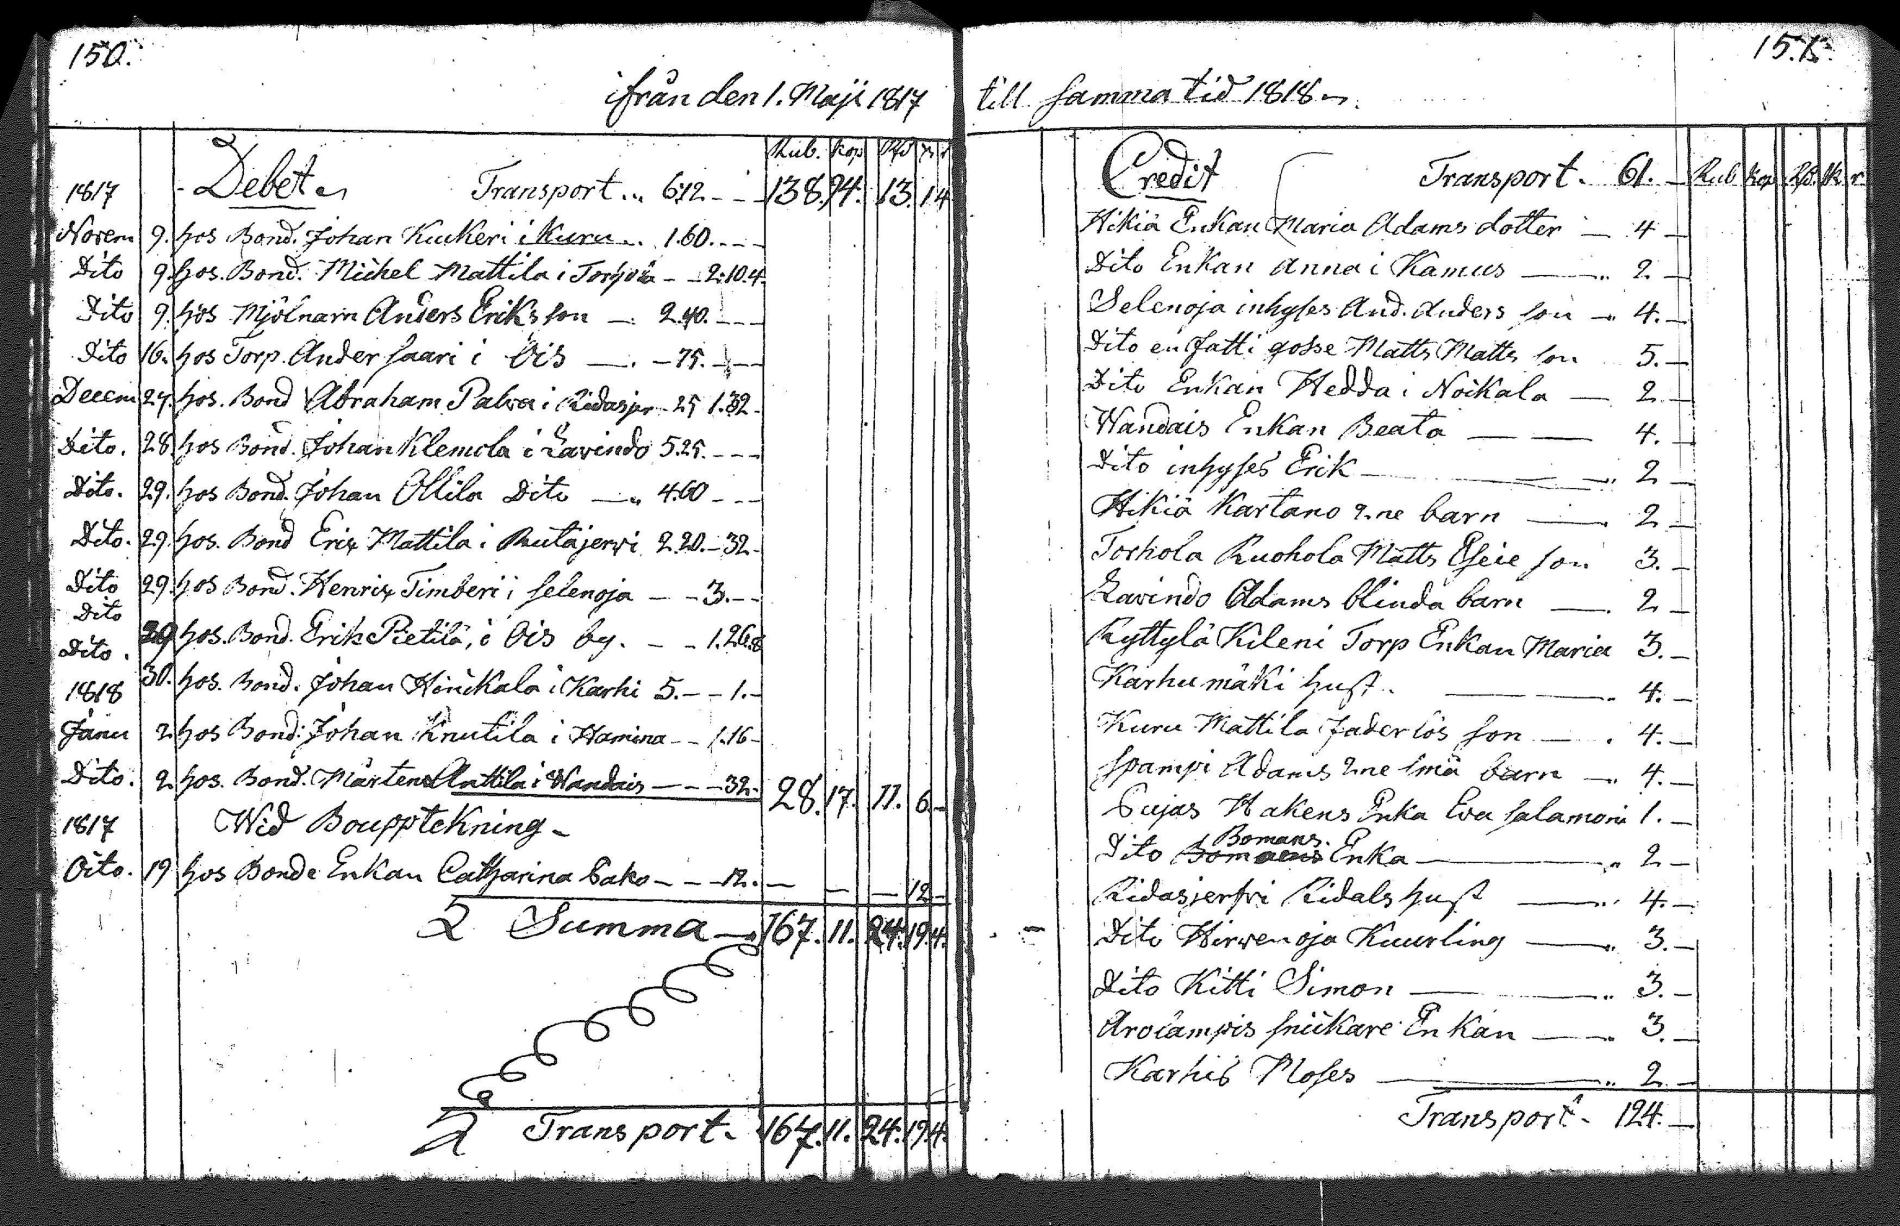 150.
ifrån den 1. Maji 1817
Rub. Kop Rd k r
1817 Debet Transport .. 6.12 - - 138. 94. 13. 1 4
Novem 9. hos Bond. Johan Kuckeri i Kuru .. 1.60. - - -
Dito 9. hos. Bond. Michel Mattila i - - 2.10.4.
Dito 9. hos Mjölnarn Anders Eriks son — 2.40. - - -
Dito 16. hos Torp. Ander saari i Ois —. - 75. - - -
Decem 27. hos. Bond Abraham Palva i Ridasjer - 25 1.32 -
Dito. 28 hos Bond. Johan Klemola i Lavindo 5.25. - - -
Dito. 29. hos Bond. Johan Ollila Dito —.. 4.60 - - -
Dito. 29. hos. Bond Erix Mattila i Rutajervi 2.20. - 32 -
Dito 29. hos Bond. Henrix Timberi i selenoja - - 3. - -
Dito
Dito . 29 hos. Bond. Erik Pietilä, i Ois by. - - 1.26.8
1818 30. hos. Bond. Johan Hinikala i Karhi 5. - - 1. -
Janu 2. hos Bond: Johan Knutila i Hamina - - 1.16 -
Dito. 2. hos. Bond. Mårtens Anttila i Wandais - - - 32. 28. 17. 11. 6. -
1817 Wid Bouppteckning -
Dito. 19 hos Bonde Enkan Catharina Cako - - - 12. - - - - 12 -
2 Summa —. 167. 11. 24. 19. 4.
2 Transport. 167. 11. 24. 19. 4.
151.
till samma tid 1818
Credit Transport. 61. — Rub Kop Rd. k r
Hikiä Enkan Maria Adams dotter — 4 —
Dito Enkan Anna i Kamus —.. 2 —
Selenoja inhyses And. Anders son —. 4. —
Dito en fatti gosse Matts Matts son 5. —
Dito Enkan Hedda i Noikala — 2 —
Wandais Enkan Beata — — 4. —
Dito inhyses Erik — —.. 2 —
Hikiä Kartano 2.ne barn —. 2 —
Torhola Ruohola Matts son 3. —
Lavindo Adams blinda barn —. 2 —
Ryttylä Kileni Torp Enkan Maria 3. —
Karhumäki hust. —. 4. —
Kuru Mattila fader lös son — . 4. —
Spampi Adams 2.ne små barn —. 4. —
Cujas Hakens Enka Eva salamoni 1. —
Bomans.
Dito Enka —.. 2 —
Ridasjerfvi Ridals hust —.. 4. —
Dito Hirvenoja Kuurling —.. 3. —
Dito Kitti Simon — —.. 3. —
Arolampis snickare Enkan —. 3. —
Karhis Moses —.. 2 —
Transport. 124. —